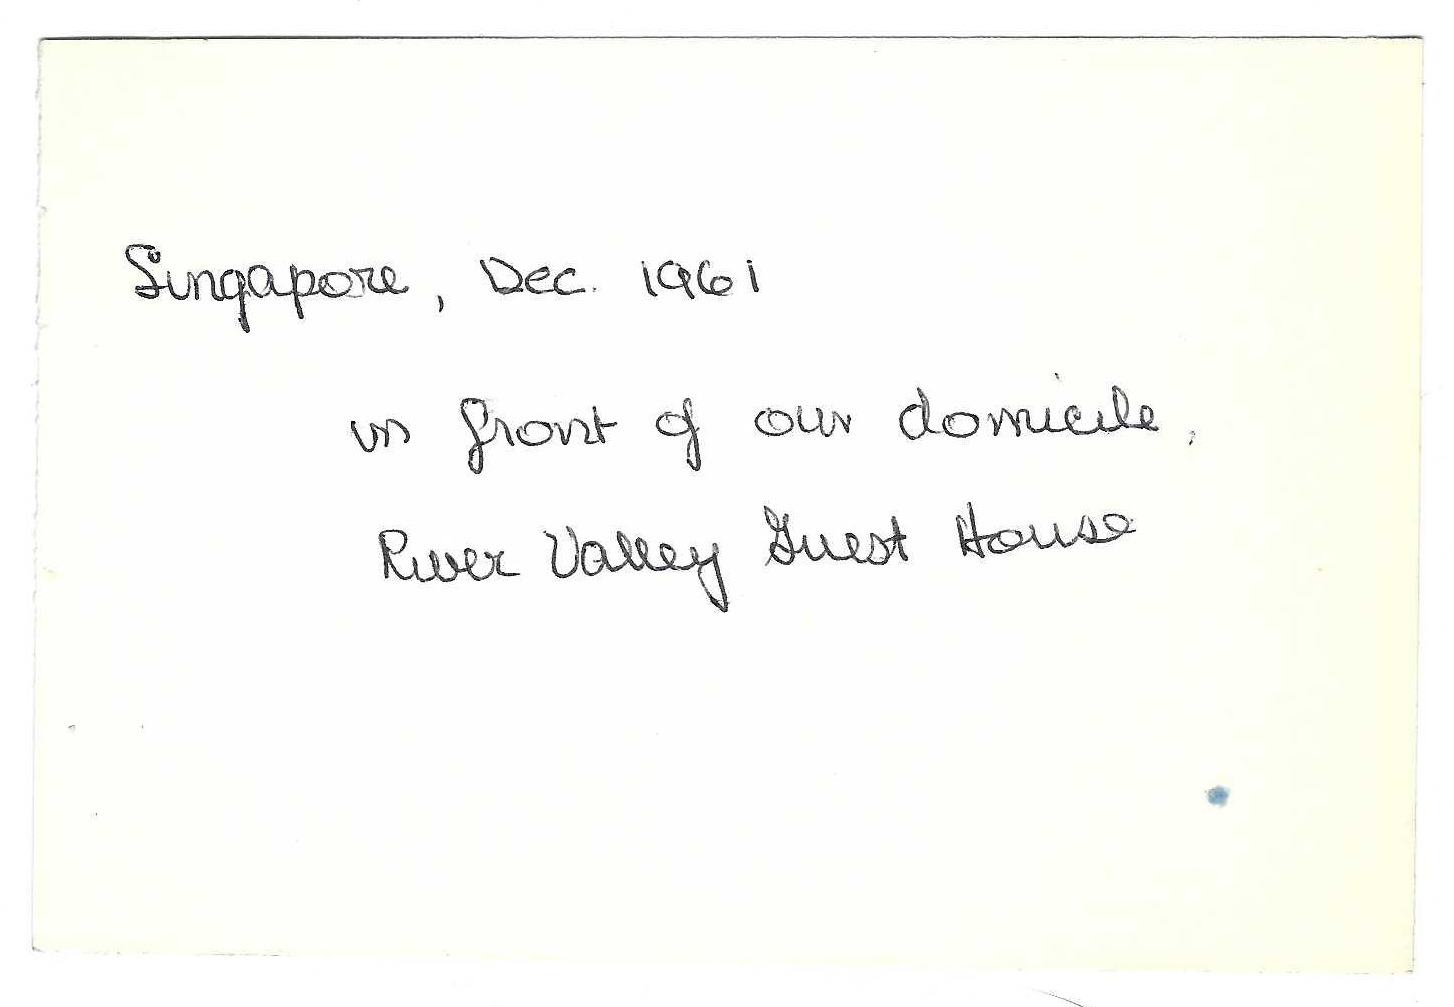 Singapore, Dec. 1961
in front of our domicile,
River Valley Guest House